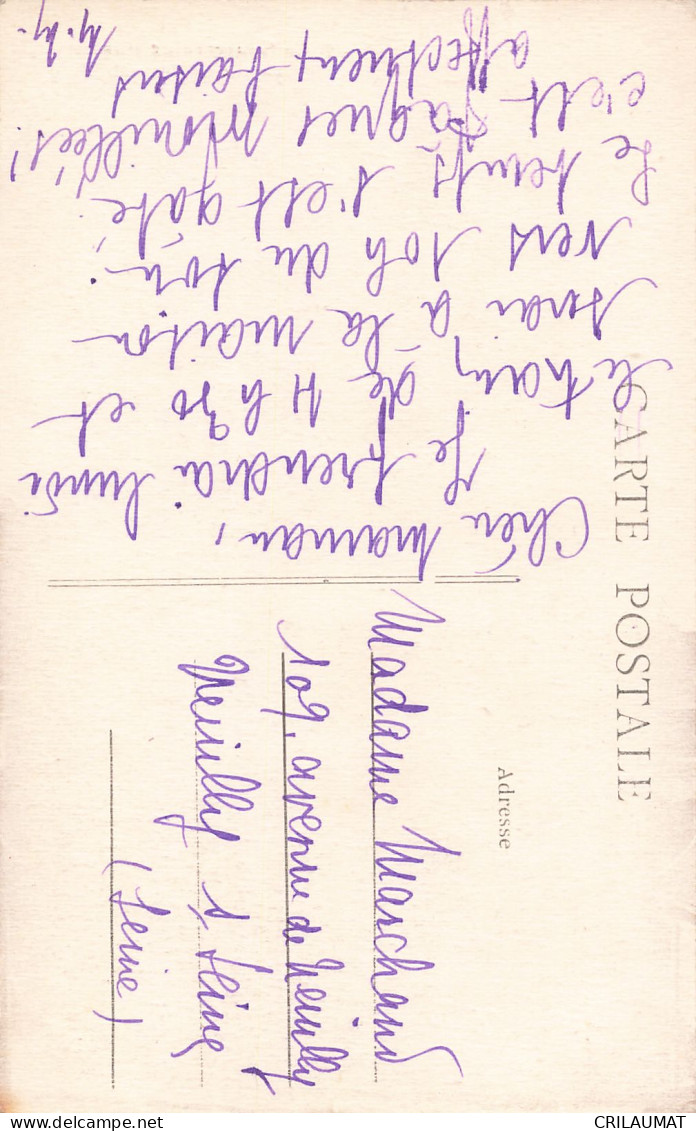 CARTE POSTALE
Chère maman,
Je prendrai lundi
le train de 17 h 30 et
serai à la maison
vers 10h du soir.
Le temps s'est gâté,
c'est Pâques mouillées!
affectueux baisers
Adresse
Madame Marchand
109, avenue de Neuilly
Neuilly s/ Seine
(Seine)
CRILAUMAT